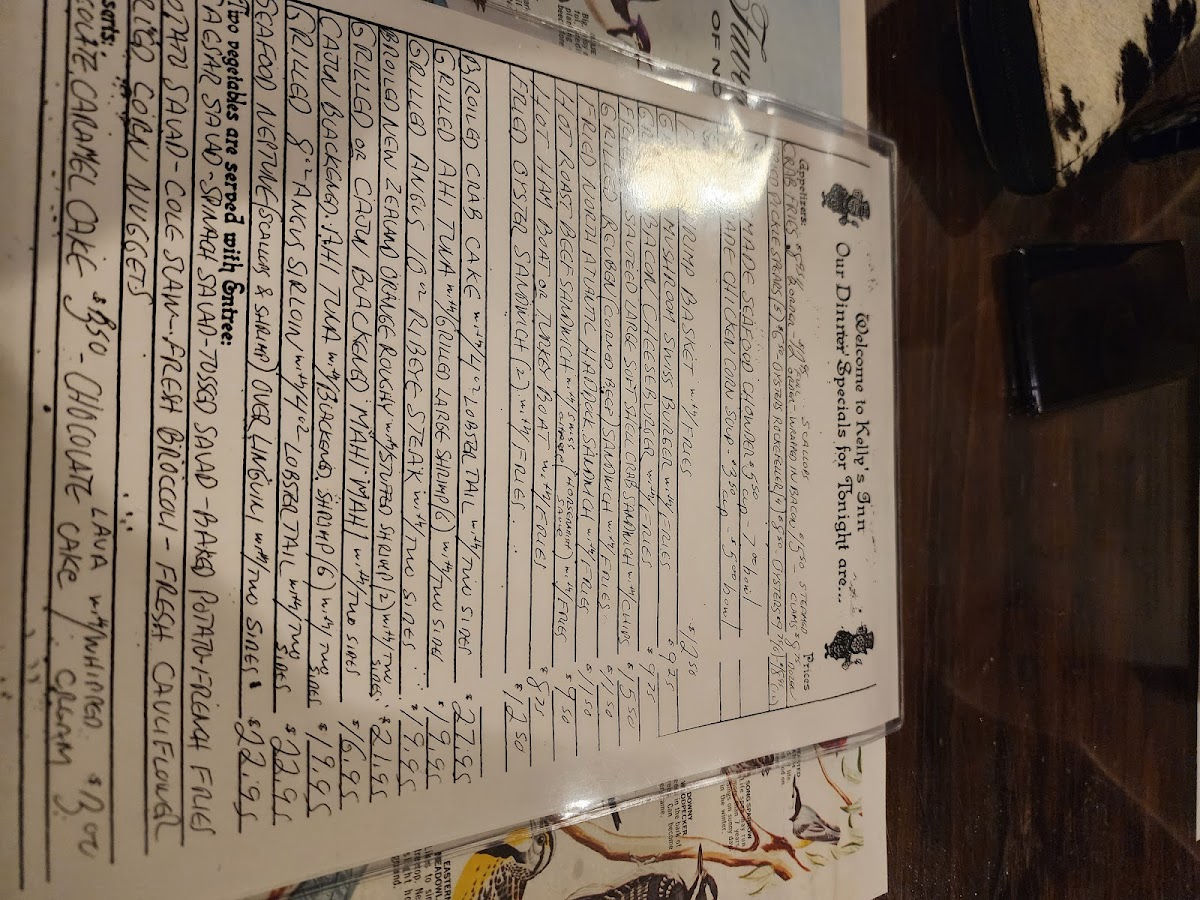 Welcome to Kelly's Inn
Our Dinner Specials for Tonight are...
Appetizers:
Prices
SCALLOPS
STEAMED
CRAB FRIES
WRAPPED IN BACON
CLAMS
PICKLE SPEARS (5) $6 OYSTERS ROCKEFELLER (4)
MADE SEAFOOD CHOWDER $5.50 cup - 7.00 bowl
CHICKEN CORN SOUP - $3.50 cup - $5.00 bowl
BASKET with FRIES $12.50
MUSHROOM SWISS BURGER with FRIES $9.25
BACON CHEESEBURGER with FRIES $9.25
SAUTEED LARGE SOFT SHELL CRAB SANDWICH with CHIPS $15.50
GRILLED REUBEN (CORNED BEEF) SANDWICH with FRIES $11.50
FRIED NORTH ATLANTIC HADDOCK SANDWICH with FRIES $11.50
HOT ROAST BEEF SANDWICH with with FRIES $9.50
HOT HAM BOAT or TURKEY BOAT with FRIES $8.75
FRIED OYSTER SANDWICH (2) with FRIES. $12.50
BROILED CRAB CAKE with 4 oz LOBSTER TAIL with TWO SIDES $27.95
GRILLED AHI TUNA with GRILLED LARGE SHRIMP (6) with TWO SIDES $19.95
GRILLED ANGUS 16 oz RIBEYE STEAK with TWO SIDES $19.95
BROILED NEW ZEALAND ORANGE ROUGHY with STUFFED SHRIMP (2) with TWO SIDES $21.95
GRILLED OR CAJUN BLACKENED MAHI MAHI with TWO SIDES $16.95
CAJUN BLACKENED AHI TUNA with BLACKENED SHRIMP (6) with TWO SIDES $19.95
GRILLED 8 oz ANGUS SIRLOIN with 4 oz LOBSTER TAIL with TWO SIDES $22.95
SEAFOOD NEPTUNE (SCALLOPS & SHRIMP) OVER LINGUINI with TWO SIDES $22.95
Two vegetables are served with Entree:
CAESAR SALAD - SPINACH SALAD - TOSSED SALAD - BAKED POTATO - FRENCH FRIES
POTATO SALAD - COLE SLAW - FRESH BROCCOLI - FRESH CAULIFLOWER
FRIED CORN NUGGETS
sserts:
CARAMEL CAKE $3.50 - CHOCOLATE LAVA CAKE with WHIPPED CREAM $3.00
OF NO
SONG SPARROW
in the winter.
DOWNY
WOODPECKER
Can become
EASTERN
MEADOWL
ground.